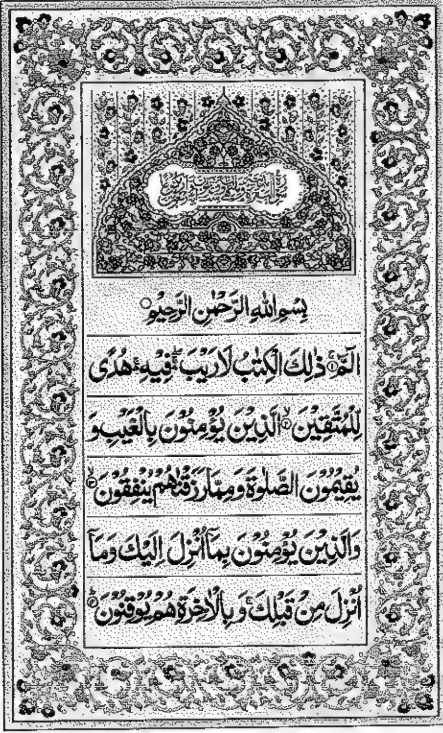 بِسْمِ اللهِ الرَّحْمٰنِ الرَّحِيْمِ
الٓمّٓ ۚ ذٰلِكَ الْكِتٰبُ لَا رَيْبَ ۛ فِيْهِ ۛ هُدًى
لِّلْمُتَّقِيْنَ ۙ الَّذِيْنَ يُؤْمِنُوْنَ بِالْغَيْبِ وَ
يُقِيْمُوْنَ الصَّلٰوةَ وَمِمَّا رَزَقْنٰهُمْ يُنْفِقُوْنَ ۙ
وَالَّذِيْنَ يُؤْمِنُوْنَ بِمَآ اُنْزِلَ اِلَيْكَ وَمَآ
اُنْزِلَ مِنْ قَبْلِكَ ۚ وَبِالْاٰخِرَةِ هُمْ يُوْقِنُوْنَ ۗ